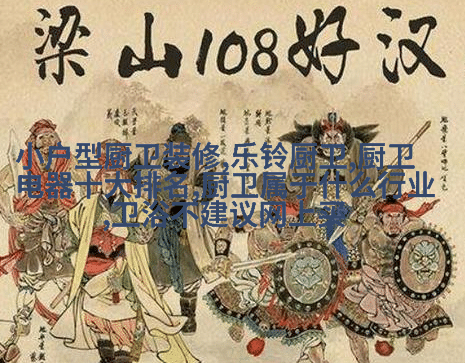 梁山108好汉
小户型厨卫装修,乐铃厨卫,厨卫
电器十大排名,厨卫属于什么行业
,卫浴不建议网上买